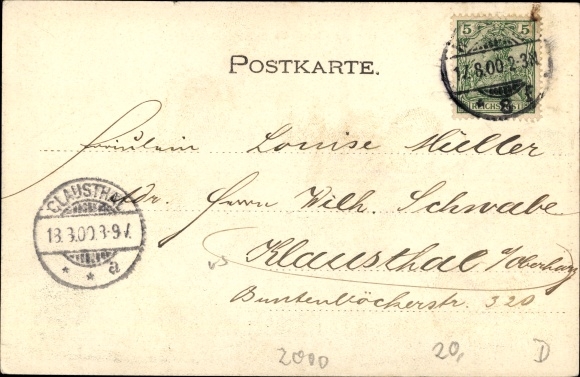 5 5
17.8.00.2-3N
REICHSPOST
POSTKARTE.
Fräulein Louise Müller
Adr. Herrn Wilh. Schwabe
CLAUSTHAL
18.8.00.8-9V.
* * a
Klausthal o/Oberharz
Buntenböckerstr. 320
2000 20, D